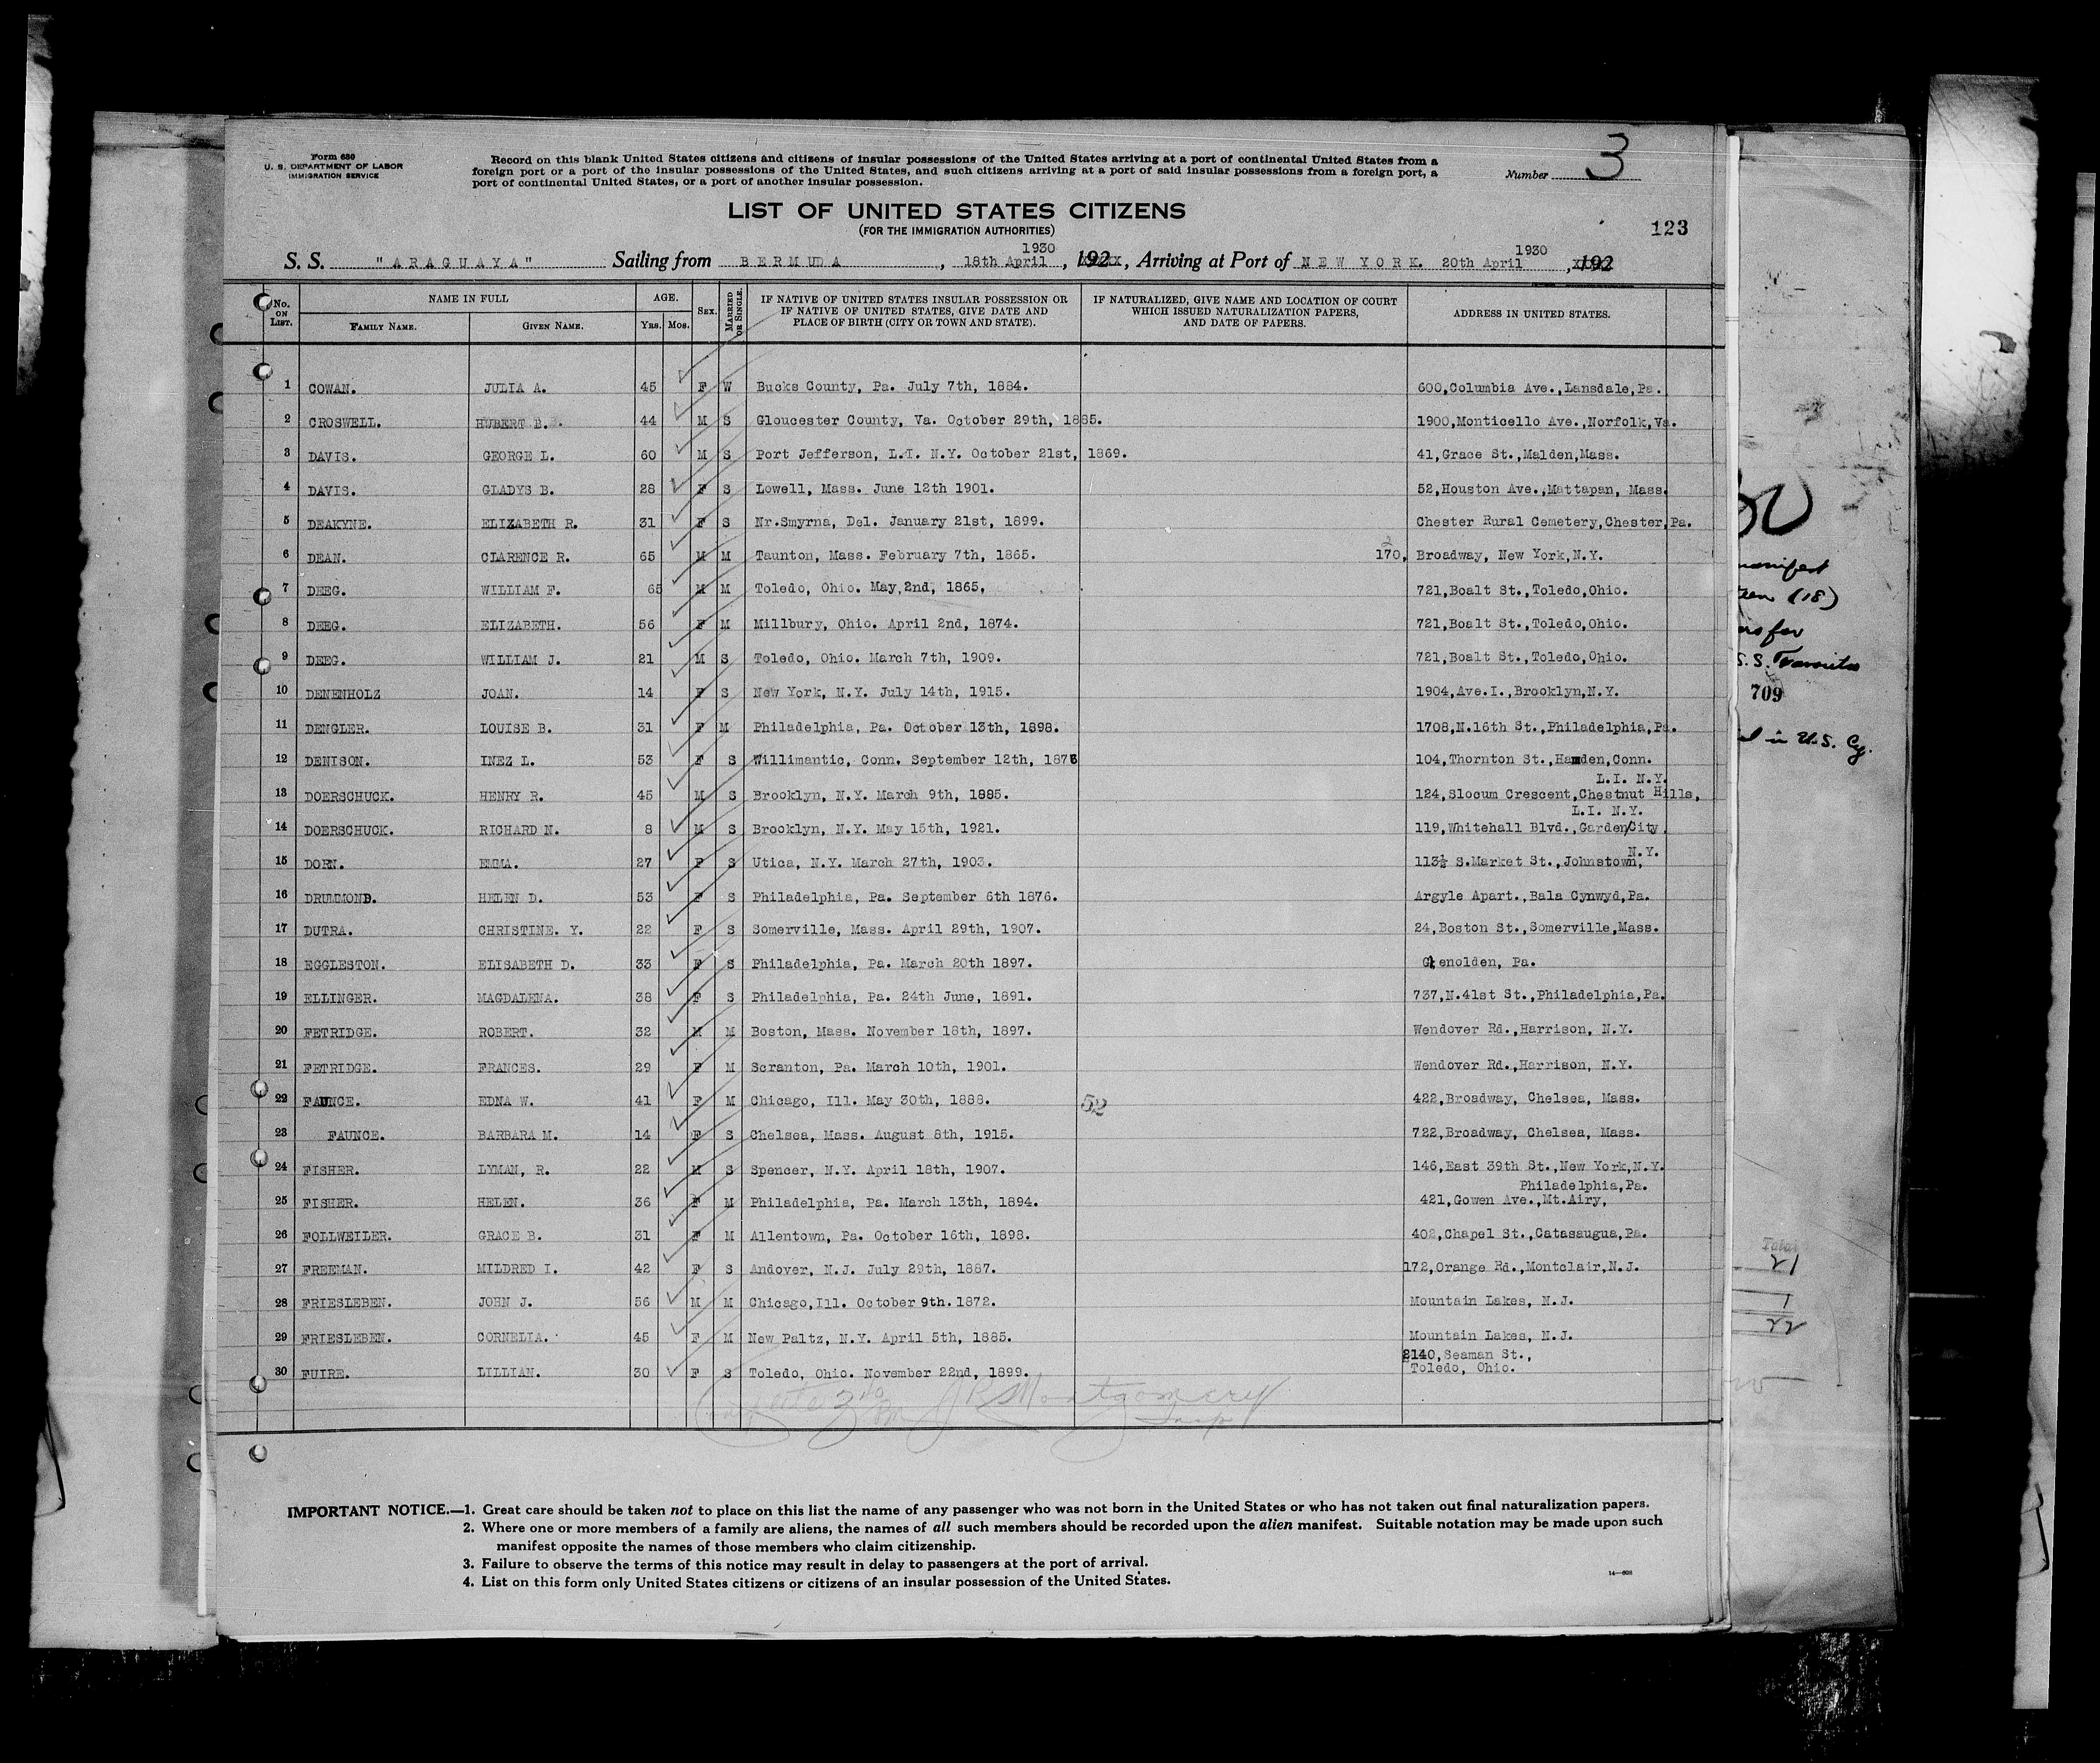 Form 630
U. S. DEPARTMENT OF LABOR
IMMIGRATION SERVICE
Record on this blank United States citizens and citizens of insular possessions of the United States arriving at a port of continental United States from a
foreign port or a port of the insular possessions of the United States, and such citizens arriving at a port of said insular possessions from a foreign port, a
port of continental United States, or a port of another insular possession.
Number 3
LIST OF UNITED STATES CITIZENS
(FOR THE IMMIGRATION AUTHORITIES)
123
S. S. "ARAGUAYA" Sailing from BERMUDA, 18th April 1930, 192, Arriving at Port of NEW YORK. 20th April 1930, 192
No. ON LIST. NAME IN FULL FAMILY NAME. GIVEN NAME. AGE. YRS. MOS. SEX. MARRIED OR SINGLE. IF NATIVE OF UNITED STATES INSULAR POSSESSION OR IF NATIVE OF UNITED STATES, GIVE DATE AND PLACE OF BIRTH (CITY OR TOWN AND STATE). IF NATURALIZED, GIVE NAME AND LOCATION OF COURT WHICH ISSUED NATURALIZATION PAPERS, AND DATE OF PAPERS. ADDRESS IN UNITED STATES.
1 COWAN. JULIA A. 45 F W Bucks County, Pa. July 7th, 1884. 600,Columbia Ave.,Lansdale,Pa.
2 CROSWELL. HUBERT B. 44 M S Gloucester County, Va. October 29th, 1885. 1900,Monticello Ave.,Norfolk,Va.
3 DAVIS. GEORGE L. 60 M S Port Jefferson, L.I. N.Y. October 21st, 1869. 41,Grace St.,Malden,Mass.
4 DAVIS. GLADYS B. 28 F S Lowell, Mass. June 12th 1901. 52,Houston Ave.,Mattapan, Mass.
5 DEAKYNE. ELIZABETH R. 31 F S Nr.Smyrna, Del. January 21st, 1899. Chester Rural Cemetery,Chester,Pa.
6 DEAN. CLARENCE R. 65 M M Taunton, Mass. February 7th, 1865. 170, Broadway, New York,N.Y.
7 DEEG. WILLIAM F. 65 M M Toledo, Ohio. May,2nd, 1865, 721,Boalt St.,Toledo,Ohio.
8 DEEG. ELIZABETH. 56 F M Millbury, Ohio. April 2nd, 1874. 721,Boalt St.,Toledo,Ohio.
9 DEEG. WILLIAM J. 21 M S Toledo, Ohio. March 7th, 1909. 721,Boalt St.,Toledo,Ohio.
10 DENENHOLZ JOAN. 14 F S New York, N.Y. July 14th, 1915. 1904,Ave.I.,Brooklyn,N.Y.
11 DENGLER. LOUISE B. 31 F M Philadelphia, Pa. October 13th, 1898. 1708,N.16th St.,Philadelphia,Pa.
12 DENISON. INEZ L. 53 F S Willimantic, Conn. September 12th, 104,Thornton St.,Hamden,Conn.
13 DOERSCHUCK. HENRY R. 45 M S Brooklyn, N.Y. March 9th, 1885. 124,Slocum Crescent,Chestnut Hills, L.I. N.Y.
14 DOERSCHUCK. RICHARD N. 8 M S Brooklyn, N.Y. May 15th, 1921. 119,Whitehall Blvd.,Garden/City L.I. N.Y.
15 DORN. EMMA. 27 F S Utica, N.Y. March 27th, 1903. 113½ S.Market St.,Johnstown, N.Y.
16 DRUMMOND. HELEN D. 53 F S Philadelphia, Pa. September 6th 1876. Argyle Apart.,Bala Cynwyd,Pa.
17 DUTRA. CHRISTINE. Y. 22 F S Somerville, Mass. April 29th, 1907. 24,Boston St.,Somerville,Mass.
18 EGGLESTON. ELISABETH D. 33 F S Philadelphia, Pa. March 20th 1897. Glenolden, Pa.
19 ELLINGER. MAGDALENA. 38 F S Philadelphia, Pa. 24th June, 1891. 737,N.41st St.,Philadelphia,Pa.
20 FETRIDGE. ROBERT. 32 M M Boston, Mass. November 18th, 1897. Wendover Rd.,Harrison, N.Y.
21 FETRIDGE. FRANCES. 29 F M Scranton, Pa. March 10th, 1901. Wendover Rd.,Harrison, N.Y.
22 FAUNCE. EDNA W. 41 F M Chicago, Ill. May 30th, 1888. 52 422,Broadway, Chelsea, Mass.
23 FAUNCE. BARBARA M. 14 F S Chelsea, Mass. August 8th, 1915. 722,Broadway, Chelsea, Mass.
24 FISHER. LYMAN, R. 22 M S Spencer, N.Y. April 18th, 1907. 146,East 39th St.,New York,N.Y.
25 FISHER. HELEN. 36 F M Philadelphia, Pa. March 13th, 1894. 421,Gowen Ave.,Mt.Airy, Philadelphia,Pa.
26 FOLLWEILER. GRACE B. 31 F M Allentown, Pa. October 16th, 1898. 402,Chapel St.,Catasaugua,Pa.
27 FREEMAN. MILDRED I. 42 F S Andover, N.J. July 29th, 1887. 172,Orange Rd.,Montclair,N.J.
28 FRIESLEBEN. JOHN J. 56 M M Chicago,Ill. October 9th. 1872. Mountain Lakes, N.J.
29 FRIESLEBEN. CORNELIA. 45 F M New Paltz, N.Y. April 5th, 1885. Mountain Lakes, N.J.
30 FUIRE. LILLIAN. 30 F S Toledo, Ohio. November 22nd, 1899. 2140,Seaman St., Toledo, Ohio.
J R Montgomery
Insp
IMPORTANT NOTICE.—1. Great care should be taken not to place on this list the name of any passenger who was not born in the United States or who has not taken out final naturalization papers.
2. Where one or more members of a family are aliens, the names of all such members should be recorded upon the alien manifest. Suitable notation may be made upon such
manifest opposite the names of those members who claim citizenship.
3. Failure to observe the terms of this notice may result in delay to passengers at the port of arrival.
4. List on this form only United States citizens or citizens of an insular possession of the United States.
manifest
(18)
S.S.
709
in U.S. Cy.
Total
21
1
22